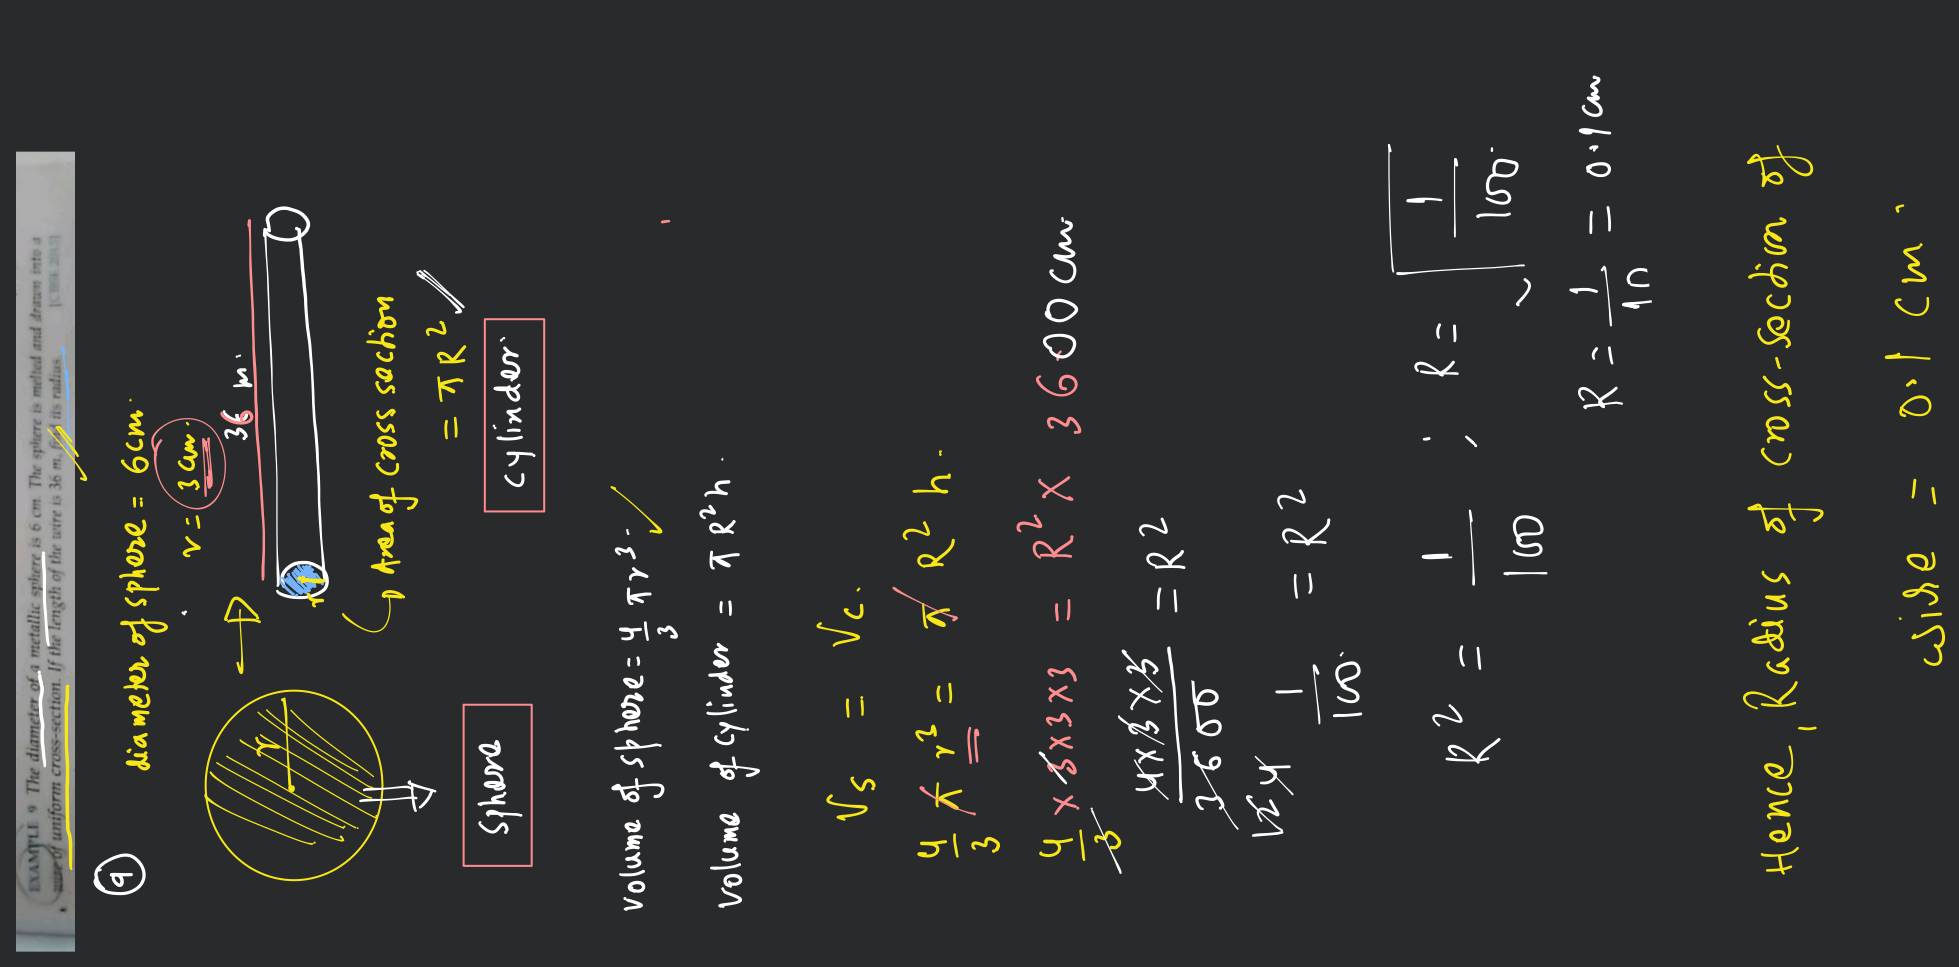 EXAMPLE 9 The diameter of a metallic sphere is 6 cm. The sphere is melted and drawn into a
wire of uniform cross-section. If the length of the wire is 36 m, find its radius.
[CBSE 2013]
9
diameter of sphere = 6cm.
r = 3 cm.
36 m.
r
r
Area of cross section
= πR²
Sphere
cylinder.
volume of sphere = 4/3 πr³.
volume of cylinder = πR²h.
Vs = Vc.
4/3 π r³ = π R² h.
4/3 x 3x3x3 = R² x 3600cm.
4x3x3/3600 = R²
1/100 = R²
R² = 1/100 ; R = √1/100.
R = 1/10 = 0.1cm
Hence, Radius of cross-section of
wire = 0.1 cm.